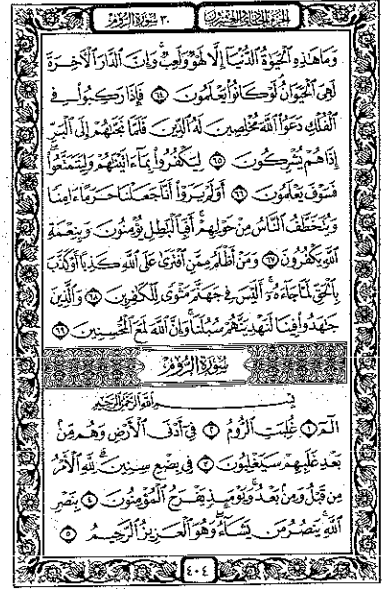 الجزء الحادي والعشرون
٣٠ سورة الروم
وَمَا هَٰذِهِ الْحَيَوٰةُ الدُّنْيَا إِلَّا لَهْوٌ وَلَعِبٌ وَإِنَّ الدَّارَ الْآخِرَةَ
لَهِيَ الْحَيَوَانُ لَوْ كَانُوا يَعْلَمُونَ ٦٤ فَإِذَا رَكِبُوا فِي
الْفُلْكِ دَعَوُا اللَّهَ مُخْلِصِينَ لَهُ الدِّينَ فَلَمَّا نَجَّىٰهُمْ إِلَى الْبَرِّ
إِذَا هُمْ يُشْرِكُونَ ٦٥ لِيَكْفُرُوا بِمَا ءَاتَيْنَٰهُمْ وَلِيَتَمَتَّعُوا
فَسَوْفَ يَعْلَمُونَ ٦٦ أَوَلَمْ يَرَوْا أَنَّا جَعَلْنَا حَرَمًا ءَامِنًا
وَيُتَخَطَّفُ النَّاسُ مِنْ حَوْلِهِمْ أَفَبِالْبَٰطِلِ يُؤْمِنُونَ وَبِنِعْمَةِ
اللَّهِ يَكْفُرُونَ ٦٧ وَمَنْ أَظْلَمُ مِمَّنِ افْتَرَىٰ عَلَى اللَّهِ كَذِبًا أَوْ كَذَّبَ
بِالْحَقِّ لَمَّا جَاءَهُ أَلَيْسَ فِي جَهَنَّمَ مَثْوًى لِلْكَٰفِرِينَ ٦٨ وَالَّذِينَ
جَٰهَدُوا فِينَا لَنَهْدِيَنَّهُمْ سُبُلَنَا وَإِنَّ اللَّهَ لَمَعَ الْمُحْسِنِينَ ٦٩
سُورَةُ الرُّومِ
بِسْمِ اللَّهِ الرَّحْمَٰنِ الرَّحِيمِ
الٓمٓ ١ غُلِبَتِ الرُّومُ ٢ فِي أَدْنَى الْأَرْضِ وَهُمْ مِنْ
بَعْدِ غَلَبِهِمْ سَيَغْلِبُونَ ٣ فِي بِضْعِ سِنِينَ لِلَّهِ الْأَمْرُ
مِنْ قَبْلُ وَمِنْ بَعْدُ وَيَوْمَئِذٍ يَفْرَحُ الْمُؤْمِنُونَ ٤ بِنَصْرِ
اللَّهِ يَنْصُرُ مَنْ يَشَاءُ وَهُوَ الْعَزِيزُ الرَّحِيمُ ٥
٤٠٤